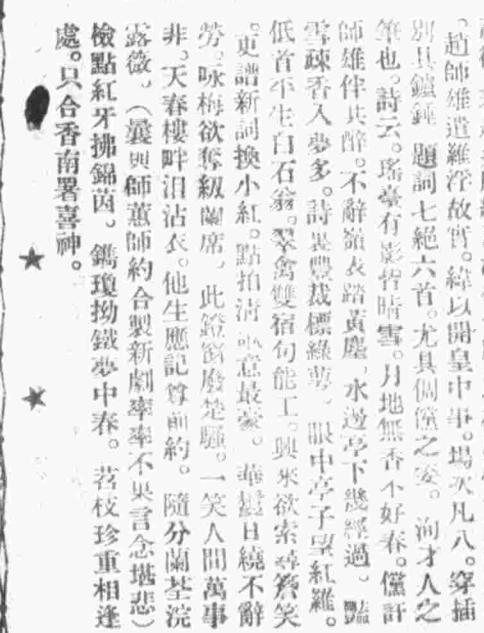 。趙師雄遣羅浮故實。緯以開皇中事。場次凡八。穿插
別具鑪錘。題詞七絕六首。尤具倜儻之姿。洵才人之
筆也。詩云。瑤臺有影皆晴雪。月地無香不好春。儻許
師雄伴共醉。不辭嶺表踏黃塵。水邊亭下幾經過。豔
雪疎香入夢多。詩裁標綠萼。眼中亭子望紅羅。
低首平生白石翁。翠禽雙宿句能工。興來欲索尋簷笑
。更譜新詞換小紅。點拍清意最豪。華鬘日繞不辭
勞。咏梅欲奪級蘭席。此鐙窗廢楚騷。一笑人間萬事
非。天春樓畔淚沾衣。他生應記尊前約。隨分蘭荃浣
露薇。（曩與師薰師約合製新劇率率不果言念堪悲）
檢點紅牙拂錦茵。鐫瓊拗鐵夢中春。苕枝珍重相逢
處。只合香南署喜神。